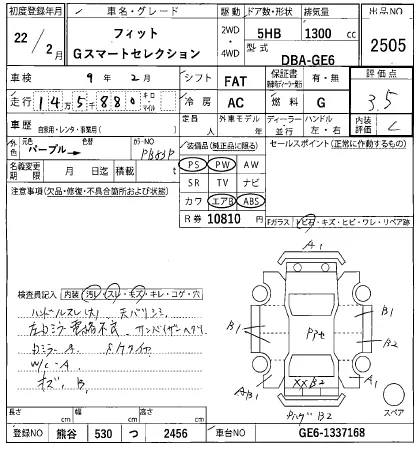 初度登録年月 車名・グレード 駆動 ドア数・形状 排気量 出品NO
22/2月 フィット 2WD・4WD 5HB 1300cc 2505
Gスマートセレクション 型式 DBA-GE6
車検 9年 2月 シフト FAT 保証書 有・無 評価点
走行 145880 キロ・マイル 冷房 AC 燃料 G 3.5
車歴 自家用・レンタ・事業用( ) 定員 人 外車モデル 年 ディーラー・並行 ハンドル 左・右 内装評価 C
外色 元色 パープル→ 色替 カラーNO PB83P 装備品(純正品に限る) セールスポイント(正常に作動するもの)
名義変更期限 月 日迄 積載 t PS PW AW
注意事項(欠品・修復・不具合箇所および状態) SR TV ナビ
カワ エアB ABS
R券 10810円 Fガラス トビ石・キズ・ヒビ・ワレ・リペア跡
検査員記入 内装 汚レ・スレ・モズ・キレ・コゲ・穴
ハンドルスレ(大) 天バリシミ
左カミラー電格不良 サンバイザーヘタリ
カミラーキ
W/C-A
キズ、B、
A1
B1
B1
B2
AB1
A1
XXB2
B2
スペア
長さ cm 幅 cm 高さ cm
登録NO 熊谷 530 つ 2456 車台NO GE6-1337168